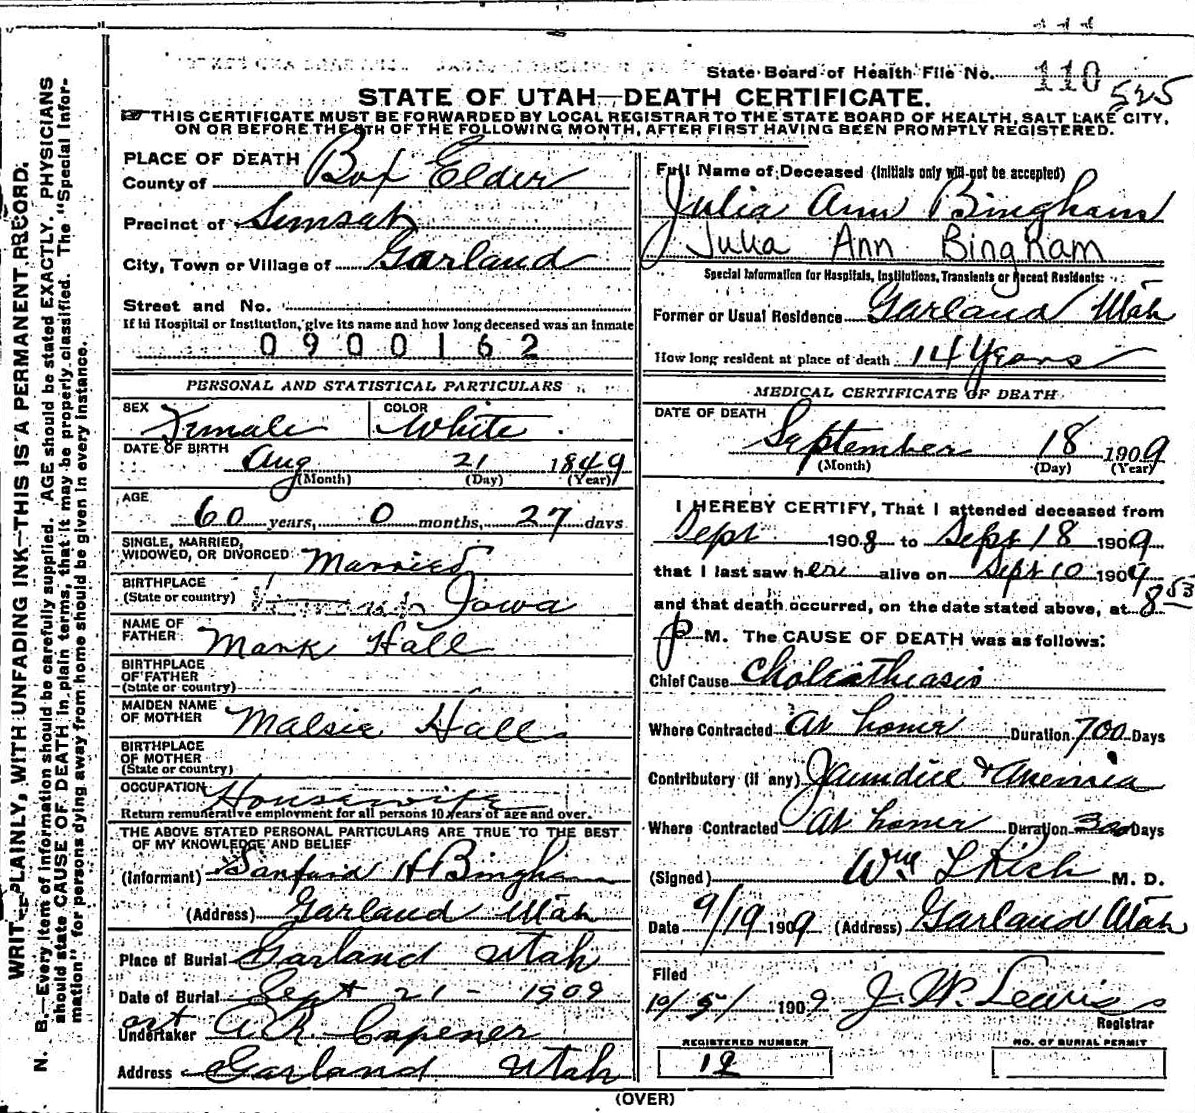 State Board of Health File No. 110 525
STATE OF UTAH—DEATH CERTIFICATE.
THIS CERTIFICATE MUST BE FORWARDED BY LOCAL REGISTRAR TO THE STATE BOARD OF HEALTH, SALT LAKE CITY,
ON OR BEFORE THE 5TH OF THE FOLLOWING MONTH, AFTER FIRST HAVING BEEN PROMPTLY REGISTERED.
WRITE PLAINLY, WITH UNFADING INK—THIS IS A PERMANENT RECORD.
N. B.—Every item of information should be carefully supplied. AGE should be stated EXACTLY. PHYSICIANS
should state CAUSE OF DEATH in plain terms, that it may be properly classified. The "Special Infor-
mation" for persons dying away from home should be given in every instance.
PLACE OF DEATH
County of Box Elder
Precinct of
City, Town or Village of Garland
Street and No.
If in Hospital or Institution, give its name and how long deceased was an inmate
0900162
PERSONAL AND STATISTICAL PARTICULARS
SEX Female COLOR White
DATE OF BIRTH Aug 21 1849
(Month) (Day) (Year)
AGE
60 years, 0 months, 27 days
SINGLE, MARRIED,
WIDOWED, OR DIVORCED Married
BIRTHPLACE
(State or country) Iowa
NAME OF
FATHER Mark Hall
BIRTHPLACE
OF FATHER
(State or country)
MAIDEN NAME
OF MOTHER Malsie Hall
BIRTHPLACE
OF MOTHER
(State or country)
OCCUPATION Housewife
Return remunerative employment for all persons 10 years of age and over.
THE ABOVE STATED PERSONAL PARTICULARS ARE TRUE TO THE BEST
OF MY KNOWLEDGE AND BELIEF
(Informant) Sanford H Bingham
(Address) Garland Utah
Place of Burial Garland Utah
Date of Burial Sept 21 - 1909
Undertaker A.R. Capener
Address Garland Utah
Full Name of Deceased (Initials only will not be accepted)
Julia Ann Bingham
Julia Ann Bingham
Special Information for Hospitals, Institutions, Transients or Recent Residents:
Former or Usual Residence Garland Utah
How long resident at place of death 14 Years
MEDICAL CERTIFICATE OF DEATH
DATE OF DEATH
September 18 1909
(Month) (Day) (Year)
I HEREBY CERTIFY, That I attended deceased from
Sept 1908 to Sept 18 1909
that I last saw her alive on Sept 10 1909
and that death occurred, on the date stated above, at 8 53
P M. The CAUSE OF DEATH was as follows:
Chief Cause Choleathiasis
Where Contracted At home Duration 700 Days
Contributory (if any) Jaundice & Anemia
Where Contracted At home Duration 300 Days
(Signed) Wm L Rich M. D.
Date 9/19 1909 (Address) Garland Utah
Filed
10/5/ 1909 J. W. Lewis
Registrar
REGISTERED NUMBER
12
NO. OF BURIAL PERMIT
(OVER)